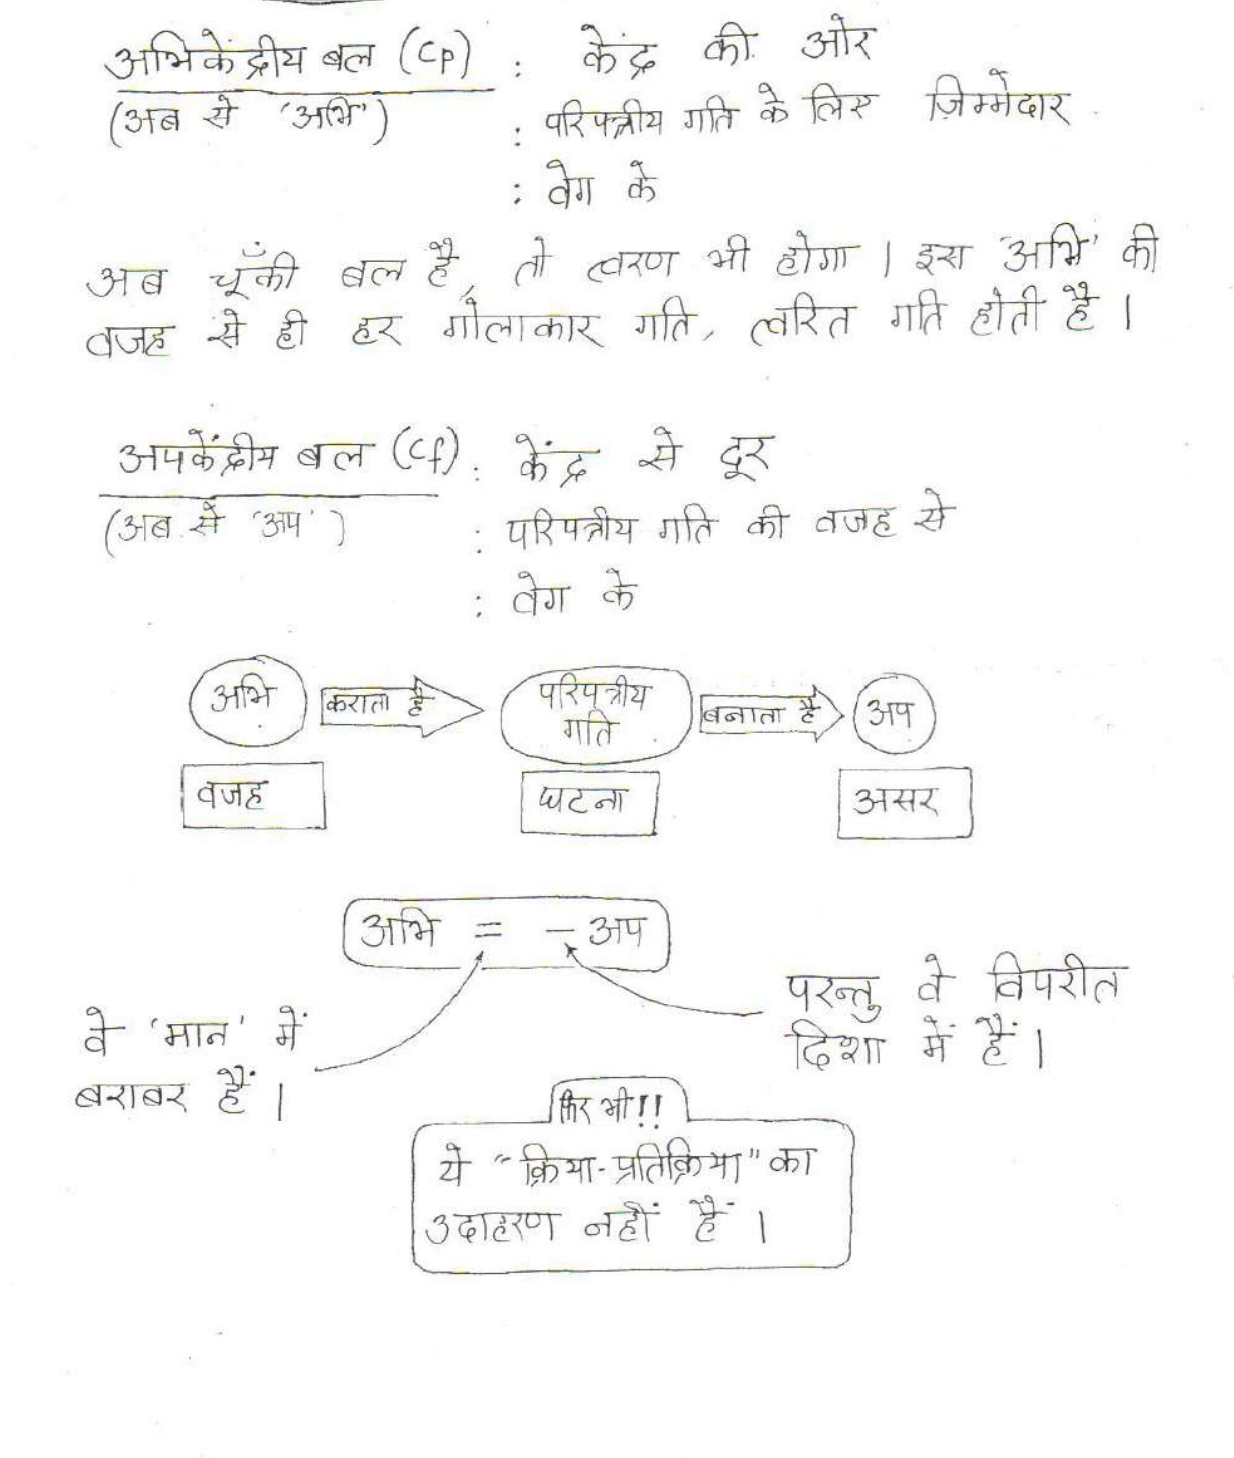 अभिकेंद्रीय बल (Cp) : केंद्र की ओर
(अब से 'अभि')
: परिपत्रीय गति के लिए ज़िम्मेदार
: वेग के
अब चूँकी बल है, तो त्वरण भी होगा । इस 'अभि' की
वजह से ही हर गोलाकार गति, त्वरित गति होती है ।
अपकेंद्रीय बल (Cf) : केंद्र से दूर
(अब से 'अप')
: परिपत्रीय गति की वजह से
: वेग के
अभि कराता है परिपत्रीय गति बनाता है अप
वजह घटना असर
अभि = - अप
वे 'मान' में
बराबर हैं ।
परन्तु वे विपरीत
दिशा में हैं ।
फिर भी!!
ये "क्रिया-प्रतिक्रिया" का
उदाहरण नहीं हैं ।